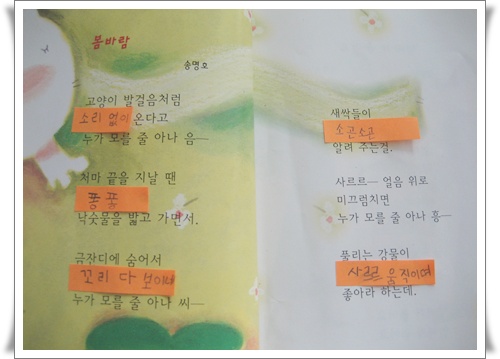 봄바람
송명호
고양이 발걸음처럼
소리 없이 온다고
누가 모를 줄 아나 음—
처마 끝을 지날 땐
퐁 퐁
낙숫물을 밟고 가면서.
금잔디에 숨어서
꼬리 다 보이네
누가 모를 줄 아나 씨—
새싹들이
소곤소곤
알려 주는걸.
사르르— 얼음 위로
미끄럼치면
누가 모를 줄 아나 흥—
풀리는 강물이
사르르 움직이며
좋아라 하는데.